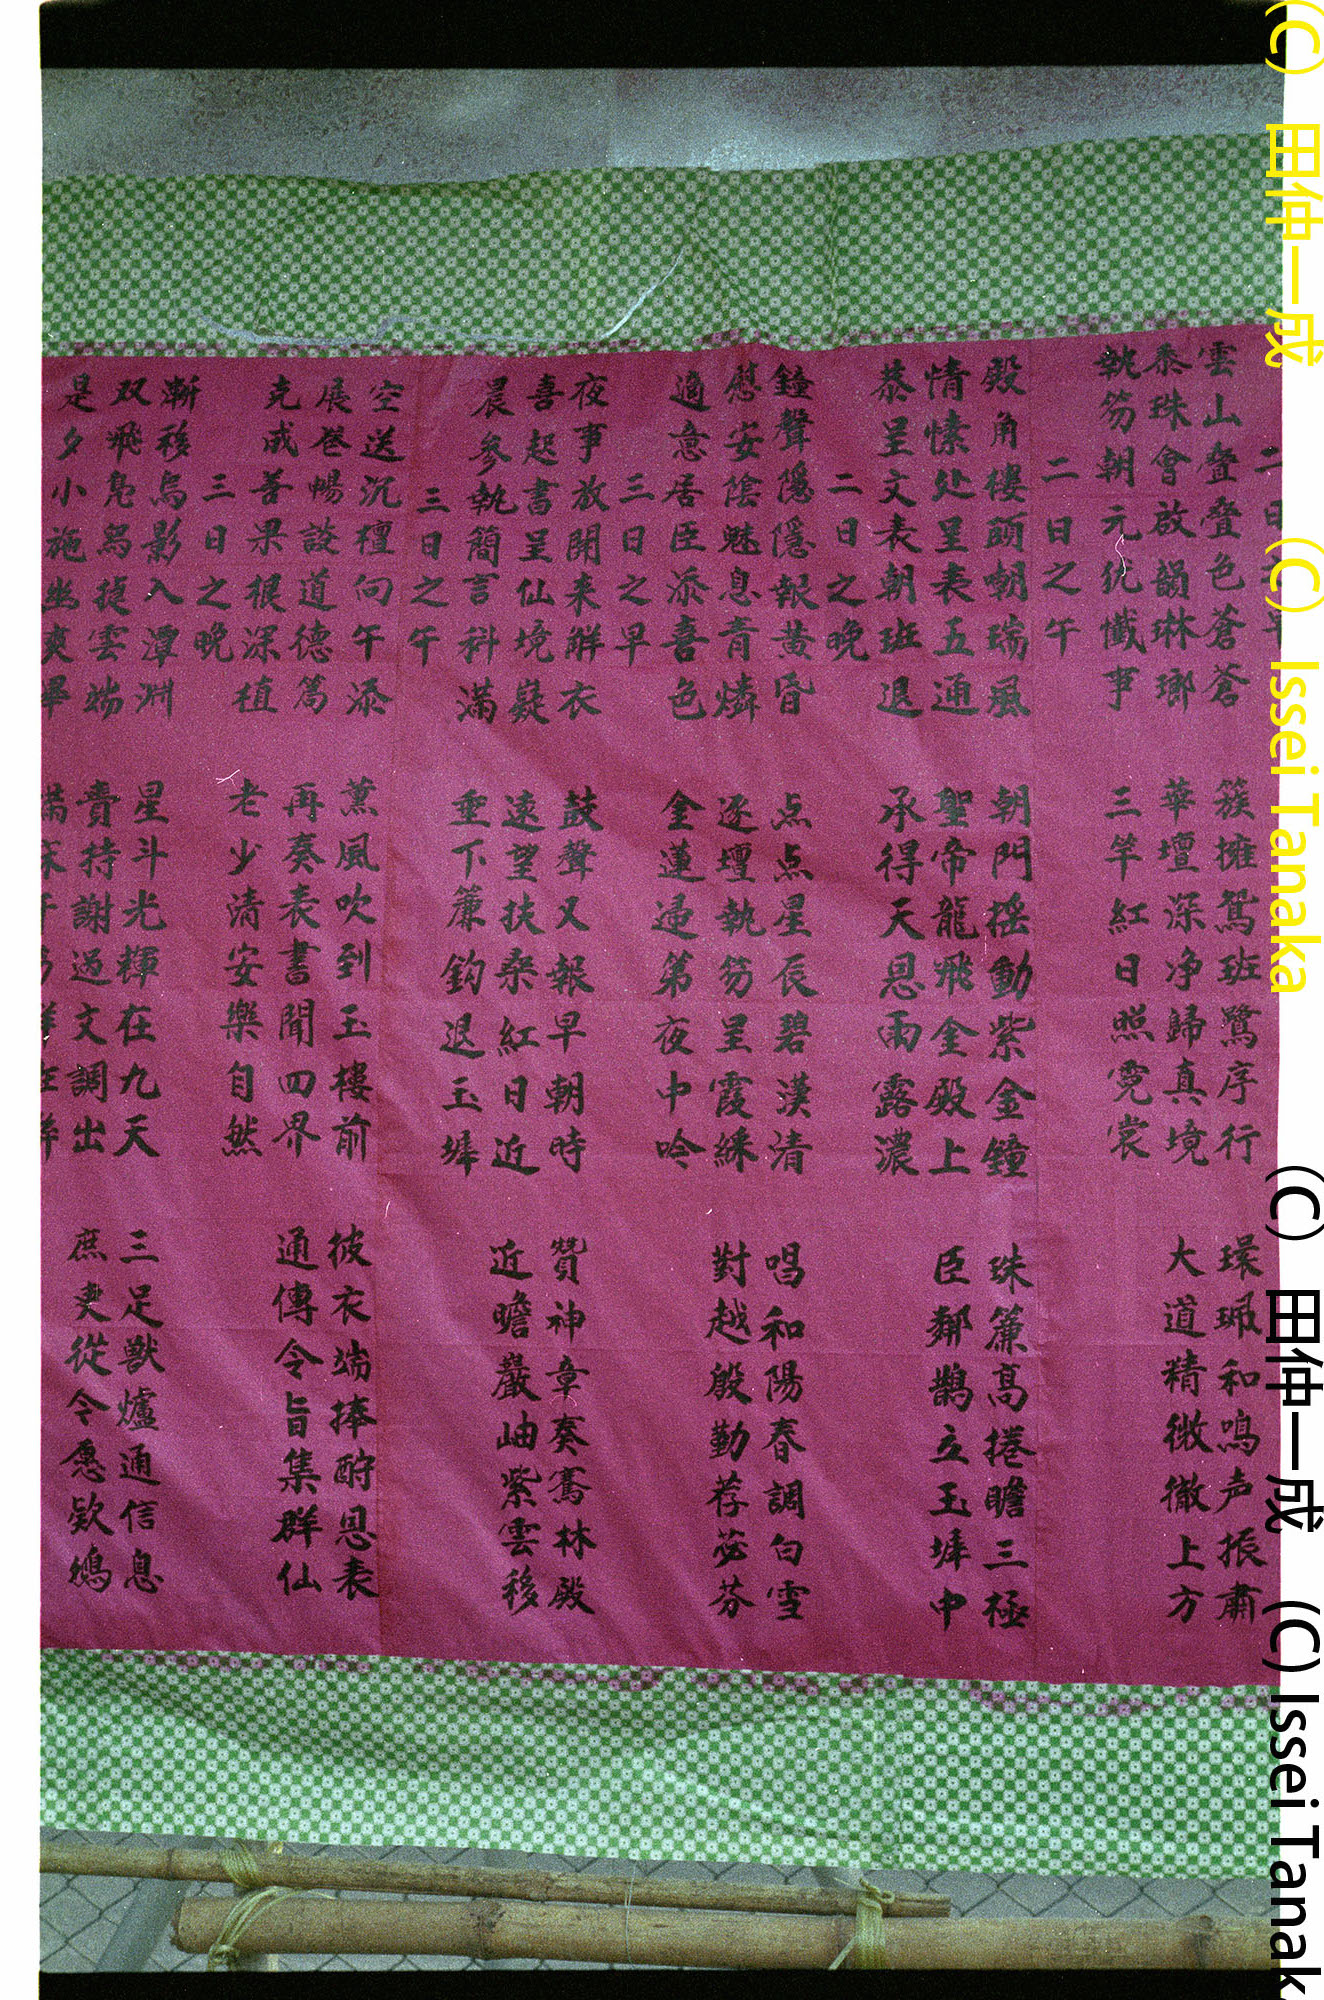 二日之早
雲山叠叠色蒼蒼 簇擁鴛班鷺序行 環珮和鳴声振肅
黍珠會啟韻琳瑯 華壇深净歸真境 大道精微徹上方
執笏朝元仇懺事 三竿紅日照霓裳
二日之午
殿角樓頭朝瑞風 朝門摇動紫金鐘 珠簾高捲瞻三極
情愫处呈表五通 聖帝龍飛金殿上 臣鄰鵲立玉墀中
恭呈文表朝班退 承得天恩雨露濃
二日之晚
鐘聲隱隱報黄昏 点点星辰碧漢清 唱和陽春調白雪
慰安陰魅息青燐 逐壇執笏呈霞綵 對越殷勤荐苾芬
適意居臣添喜色 金蓮遶第夜中吟
三日之早
夜事放開来解衣 鼓聲又報早朝時 贊神章奏騫林殿
喜起書呈仙境嶷 遠望扶桑紅日近 近瞻巖岫紫雲移
晨参執簡言科滿 垂下簾鈎退玉墀
三日之午
空送沉檀向午添 薰風吹到玉樓前 披衣端捧酧恩表
展卷暢談道德篇 再奏表書聞四界 通傳令旨集群仙
克成善果根深植 老少清安樂自然
三日之晚
漸移烏影入潭淵 星斗光輝在九天 三足獸爐通信息
双飛凫舄旋雲端 賫持謝過文調出 庶吏從令愿欵鴻
是夕小施幽爽畢
(C) 田仲一成 (C) Issei Tanaka
(C) 田仲一成 (C) Issei Tanak